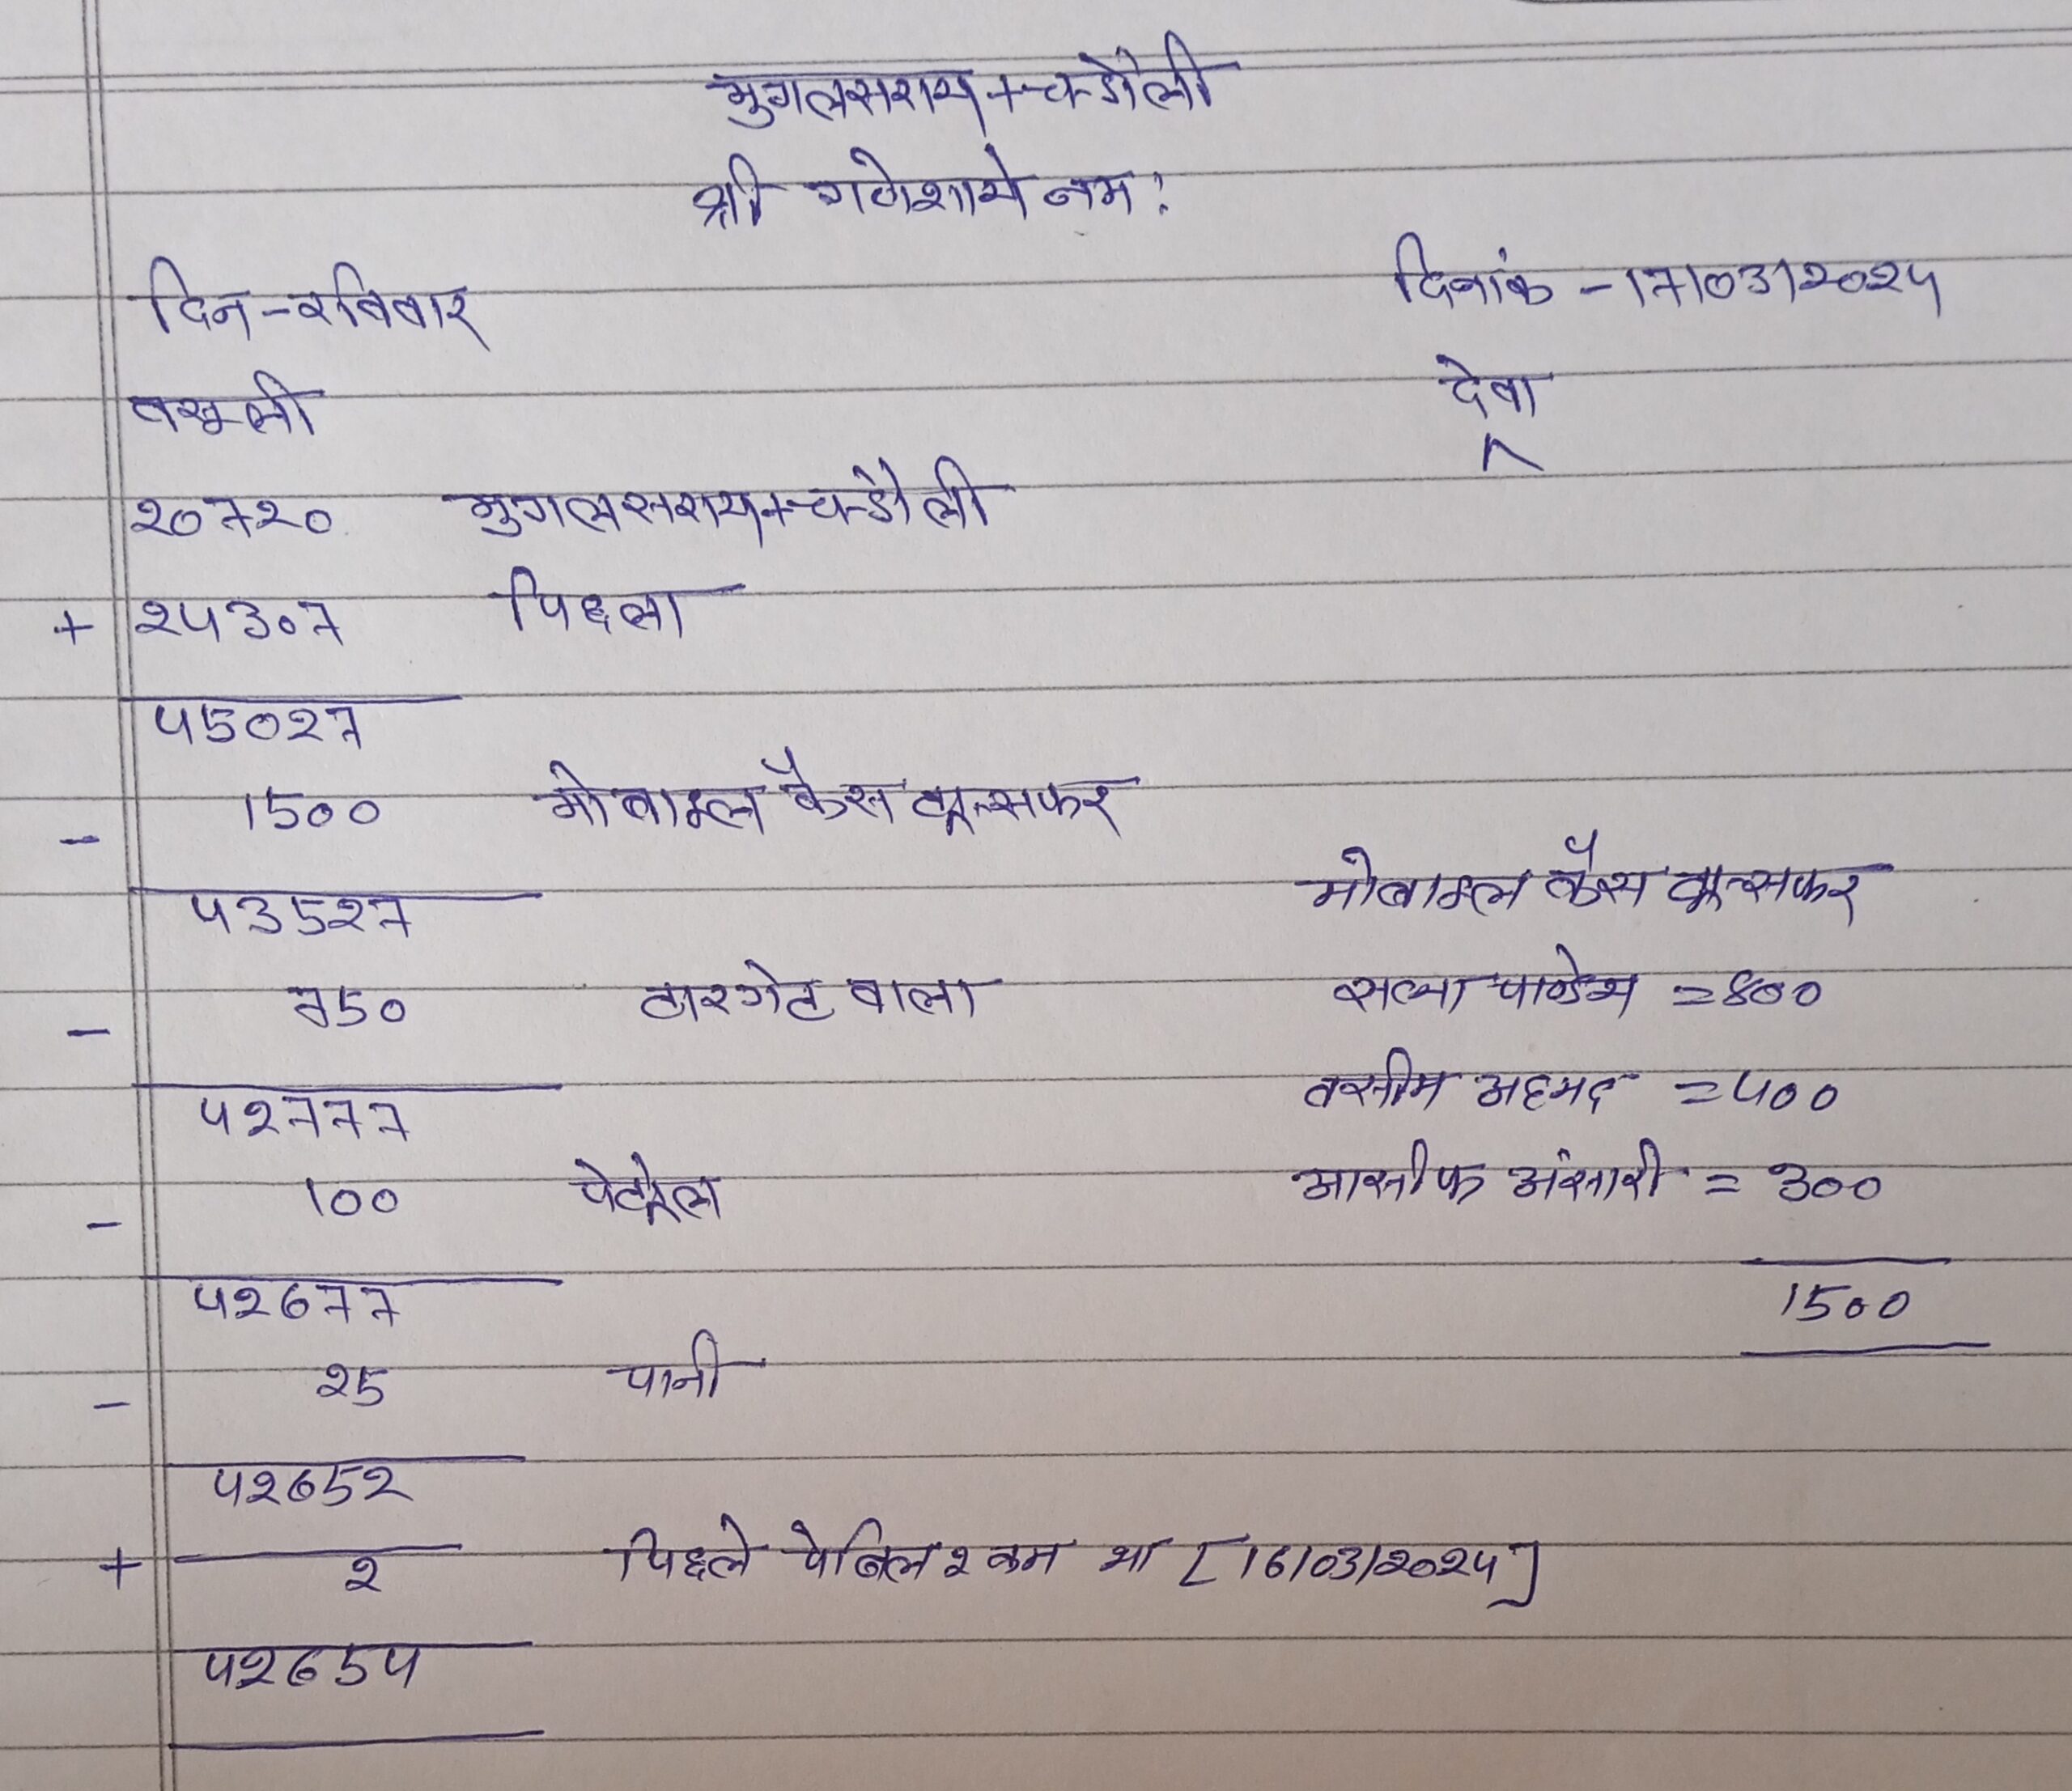 मुगलसराय + चन्डौली
श्री गणेशाये नम:
दिन - रविवार
दिनांक - 17/03/2024
वसूली
देवा
20720 मुगलसराय + चन्डौली
+ 24307 पिछला
45027
- 1500 मोबाइल कैस ट्रान्सफर
43527
मोबाइल कैस ट्रान्सफर
- 750 टारगेट वाला
सत्या पाण्डेय = 800
42777
वसीम अहमद = 400
- 100 पेट्रोल
आसीफ अंसारी = 300
42677
1500
- 25 पानी
42652
+ 2 पिछले पेबिल 2 कम था [16/03/2024]
42654